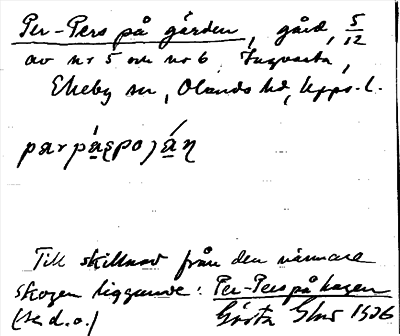 Per-Pers på gården, gård, 5/12
av nr 5 och nr 6
Ekeby sn, Olands hd, Upps. l.
parpáspojáṇ
Till skillnad från den närmare
skogen liggande: Per-Pers på hagen
(se d.o.) Gösta 1926